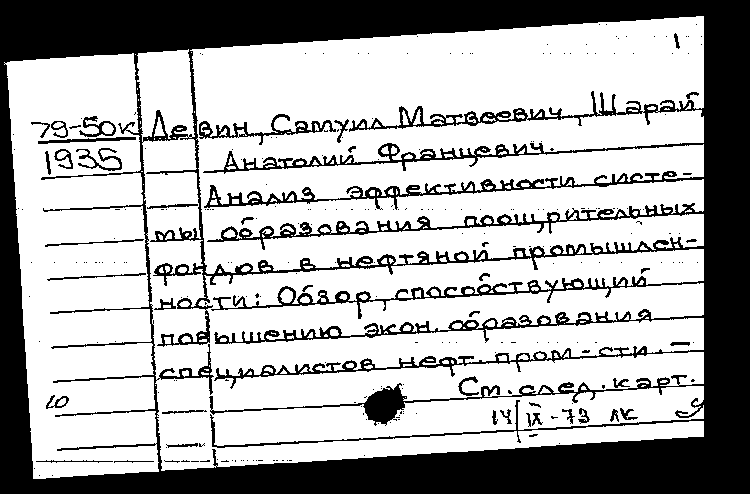 1
79-50к Левин, Самуил Матвеевич, Шарай,
1935 Анатолий Францевич.
Анализ эффективности систе-
мы образования поощрительных
фондов в нефтяной промышлен-
ности: Обзор, способствующий
повышению экон. образования
специалистов нефт. пром-сти. –
См. след. карт.
10
14/IX-73 ЛК